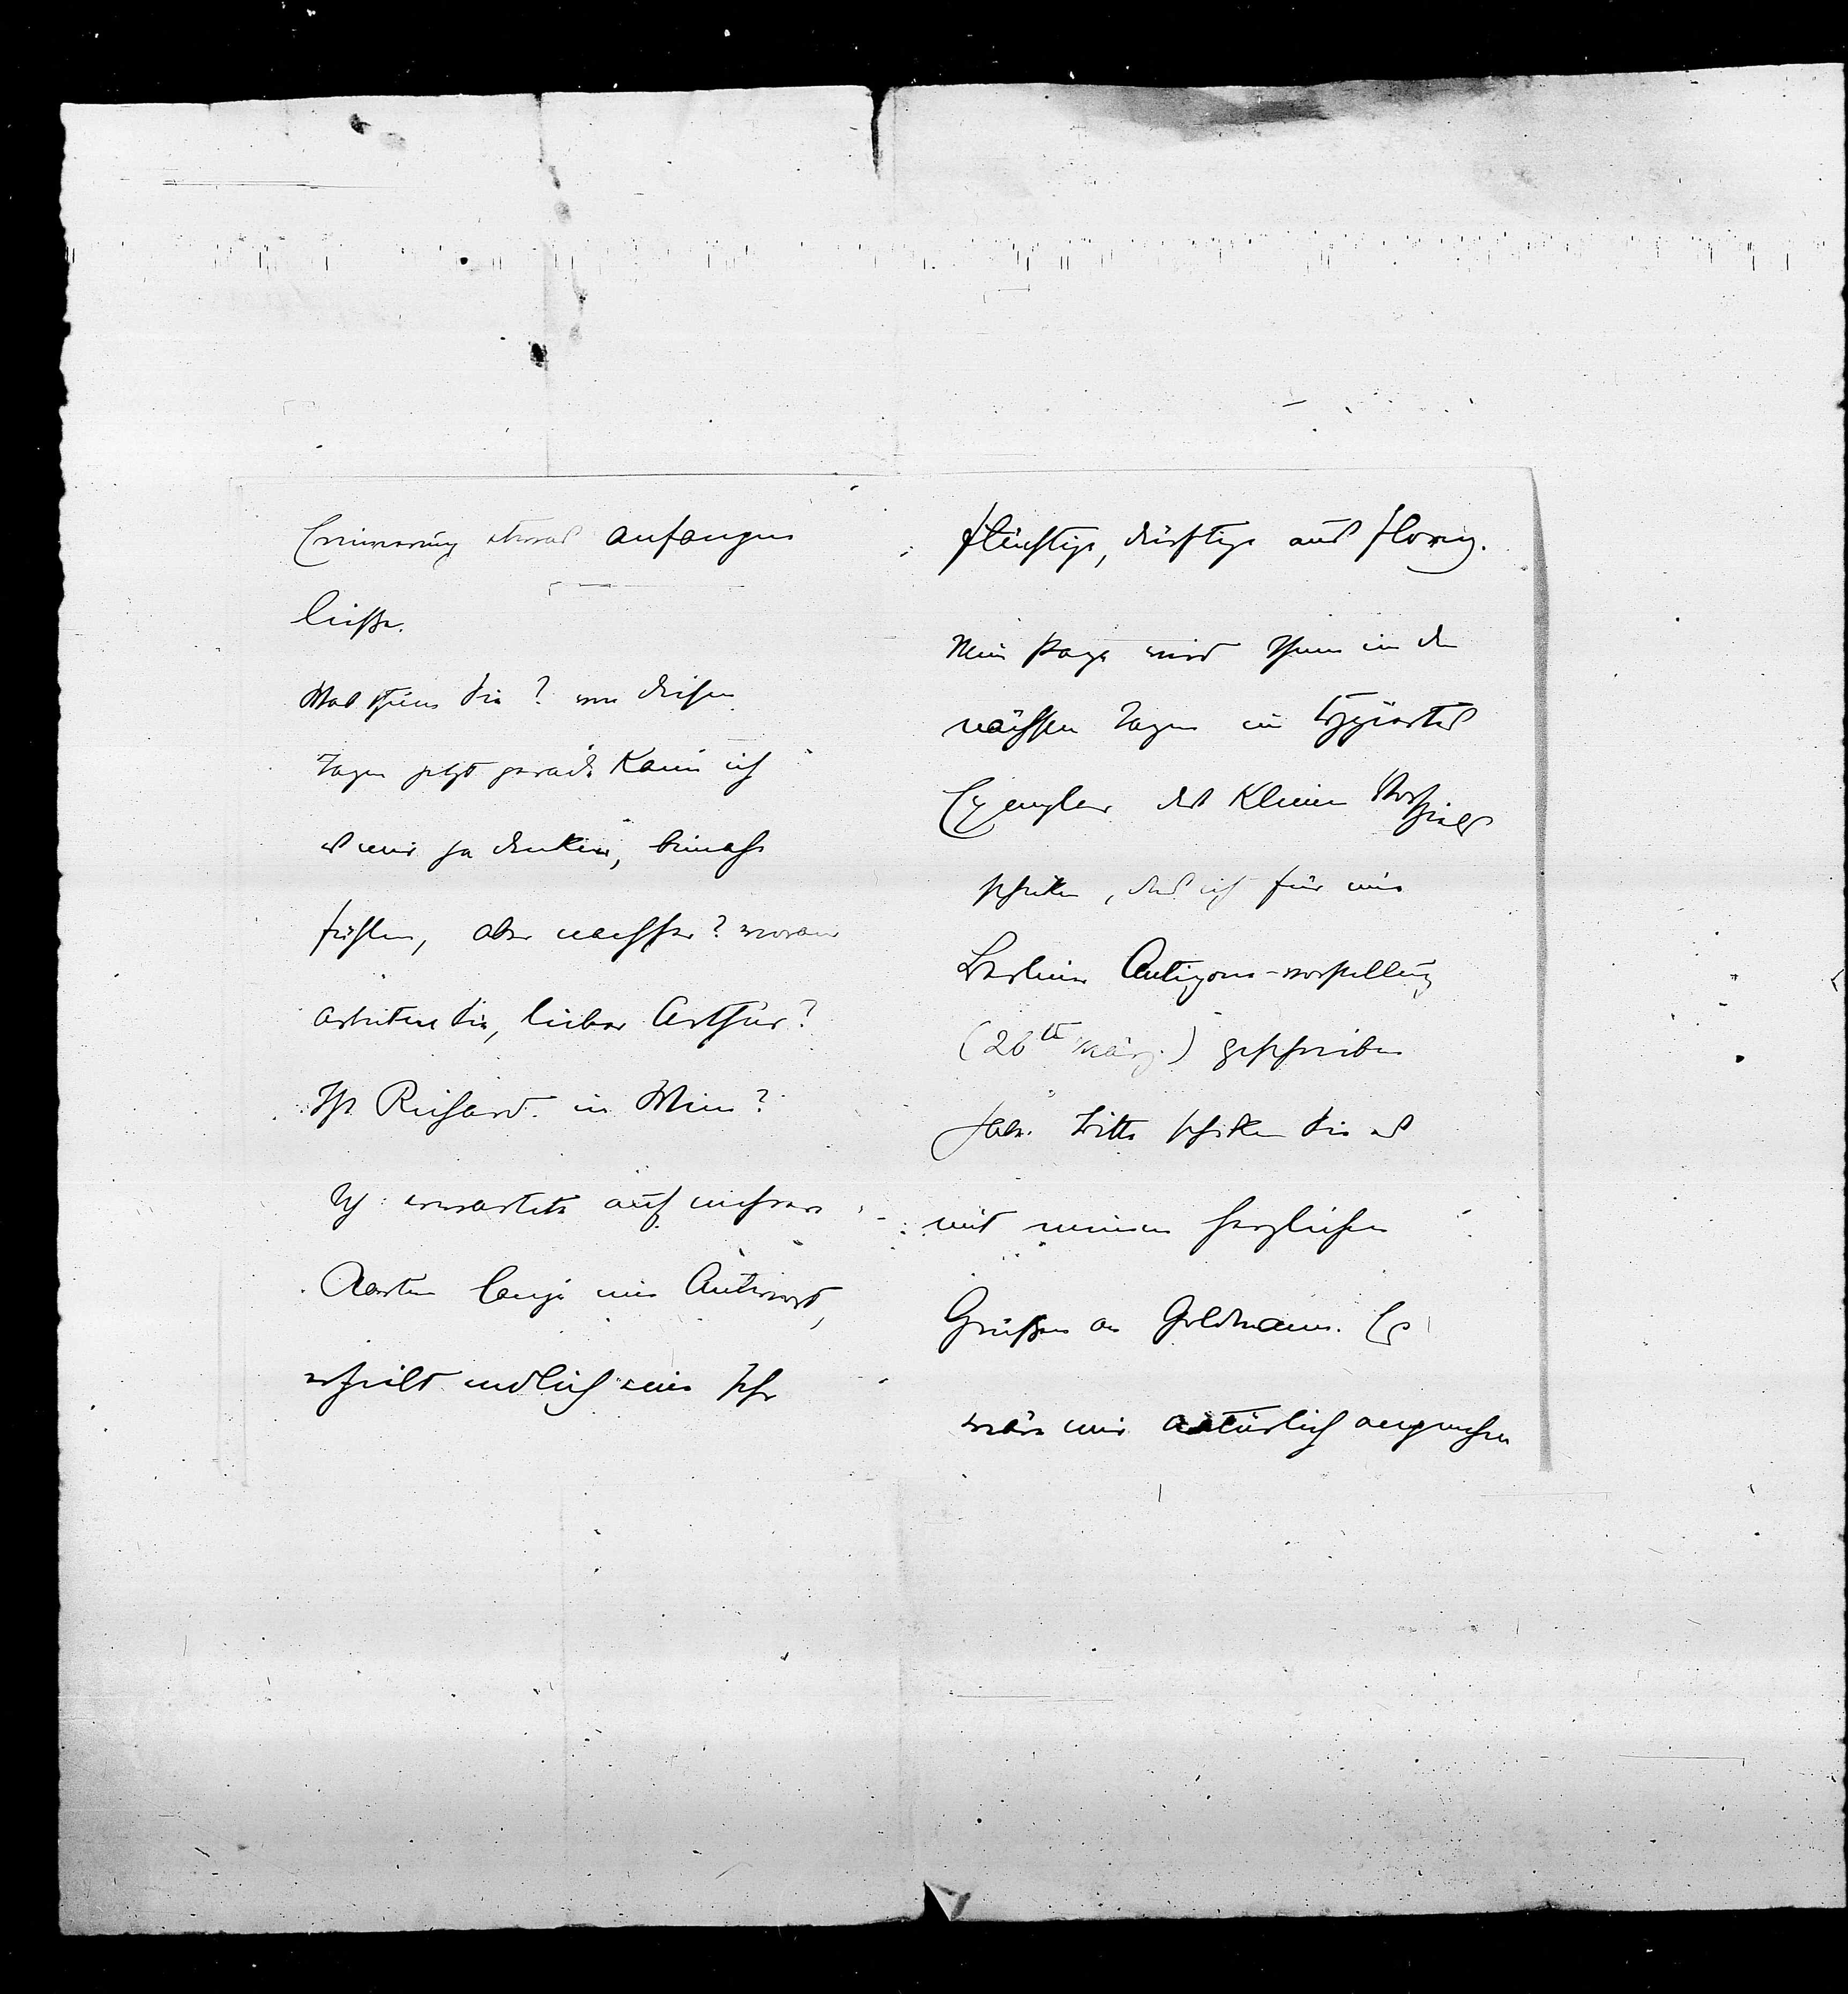 Erinnerung etwas anfangen
ließe.
Was thun Sie? von diesen
Tagen jetzt gerade kann ich
es mir ja denken, beinahe
fühlen, aber nachher? woran
arbeiten Sie, lieber Arthur?
Ist Richard in Wien?
Ich erwartete auf mehrere
Karten lange eine Antwort,
erhielt endlich eine sehr
flüchtige, dürftige aus Florenz.
Mein Papa wird Ihnen in den
nächsten Tagen ein
Exemplar des kleinen Vorspiels
schicken, das ich für eine
Berliner Antigone-vorstellung
(26te März.) geschrieben
habe. Bitte schicken Sie es
mit meinen herzlichen
Grüßen an Goldmann. Es
wäre mir natürlich angenehm